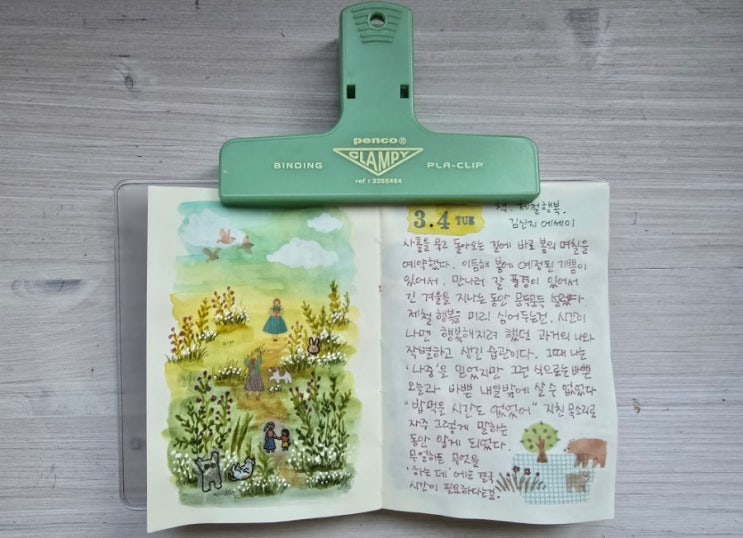 penco®
CLAMPY
BINDING
PLA-CLIP
ref : 3255464
3.4 TUE
책. 제철행복.
김신지 에세이
사흘을 묵고 돌아오는 길에 바로 봄의 며칠을
예약했다. 이듬해 봄에 예정된 기쁨이
있어서, 만나러 갈 풍경이 있어서
긴 겨울을 지나는 동안 문득문득 설렜다.
제철 행복을 미리 심어두는건, 시간이
나면 행복해지려 했던 과거의 나와
작별하고 생긴 습관이다. 그때 나는
'나중'을 믿었지만 그런 식으로는 바쁜
오늘과 바쁜 내일밖에 살 수 없었다
"밥먹을 시간도 없었어" 지친 목소리로
자주 그렇게 말하는
동안 알게 되었다.
무얼하든 무엇을
'하는 데'에는 결국
시간이 필요하다는걸.